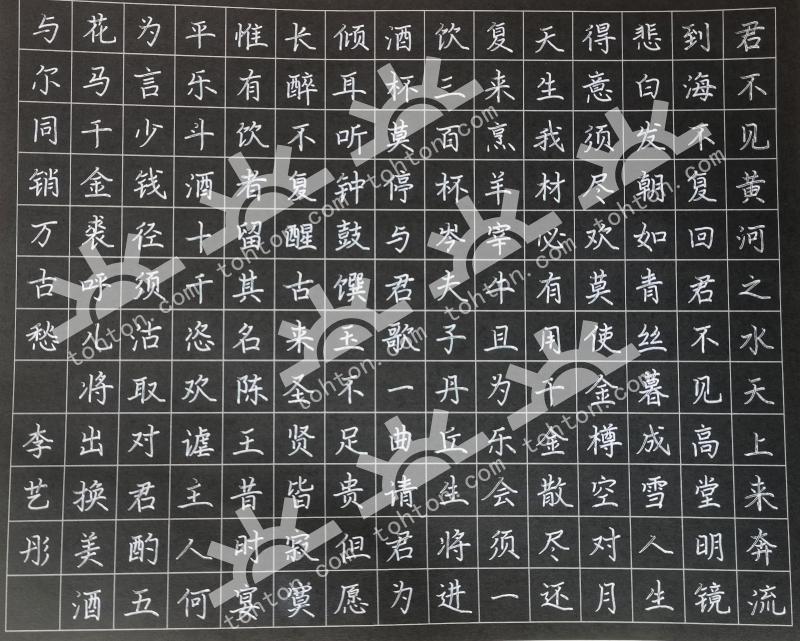 君不见黄河之水天上来奔流
到海不复回君不见高堂明镜
悲白发朝如青丝暮成雪人生
得意须尽欢莫使金樽空对月
天生我材必有用千金散尽还
复来烹羊宰牛且为乐会须一
饮三百杯岑夫子丹丘生将进
酒杯莫停与君歌一曲请君为
倾耳听钟鼓馔玉不足贵但愿
长醉不复醒古来圣贤皆寂寞
惟有饮者留其名陈王昔时宴
平乐斗酒十千恣欢谑主人何
为言少钱径须沽取对君酌五
花马千金裘呼儿将出换美酒
与尔同销万古愁 李艺彤
tohton.com
tohton.com
tohton.com
tohton.com
tohton.com
tohton.com
tohton.com
tohton.com
tohton.com